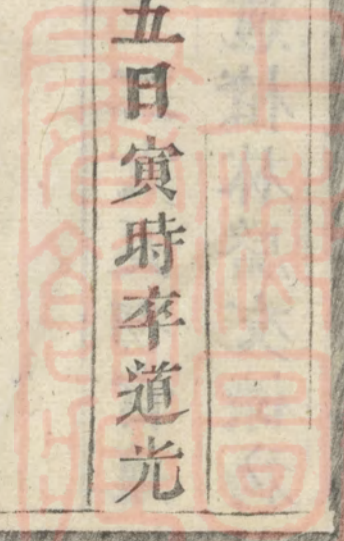 五日寅時卒道光